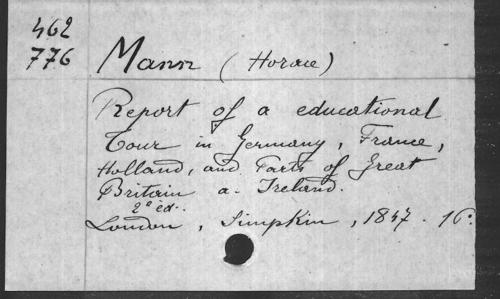 462
776
Mann (Horace)
Report of a educational
Tour in Germany, France,
Holland, and Parts of Great
Britain a. Ireland.
2e ed.
London, Simpkin, 1847. 16°